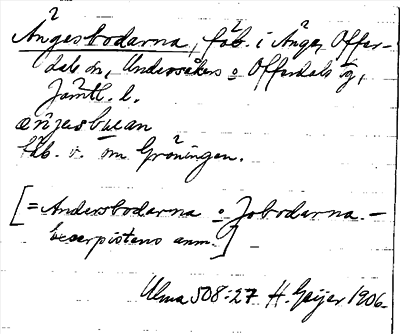 Ångesbodarna, fäb. i Ånge, Offer-
dals sn, Undersåkers o Offerdals tg,
Jämtl. l.
fäb. v. om Gröningen.
[= Andersbodarna o Jobodarna. –
excerpistens anm.]
Ulma 508:27 H. Geijer 1906.